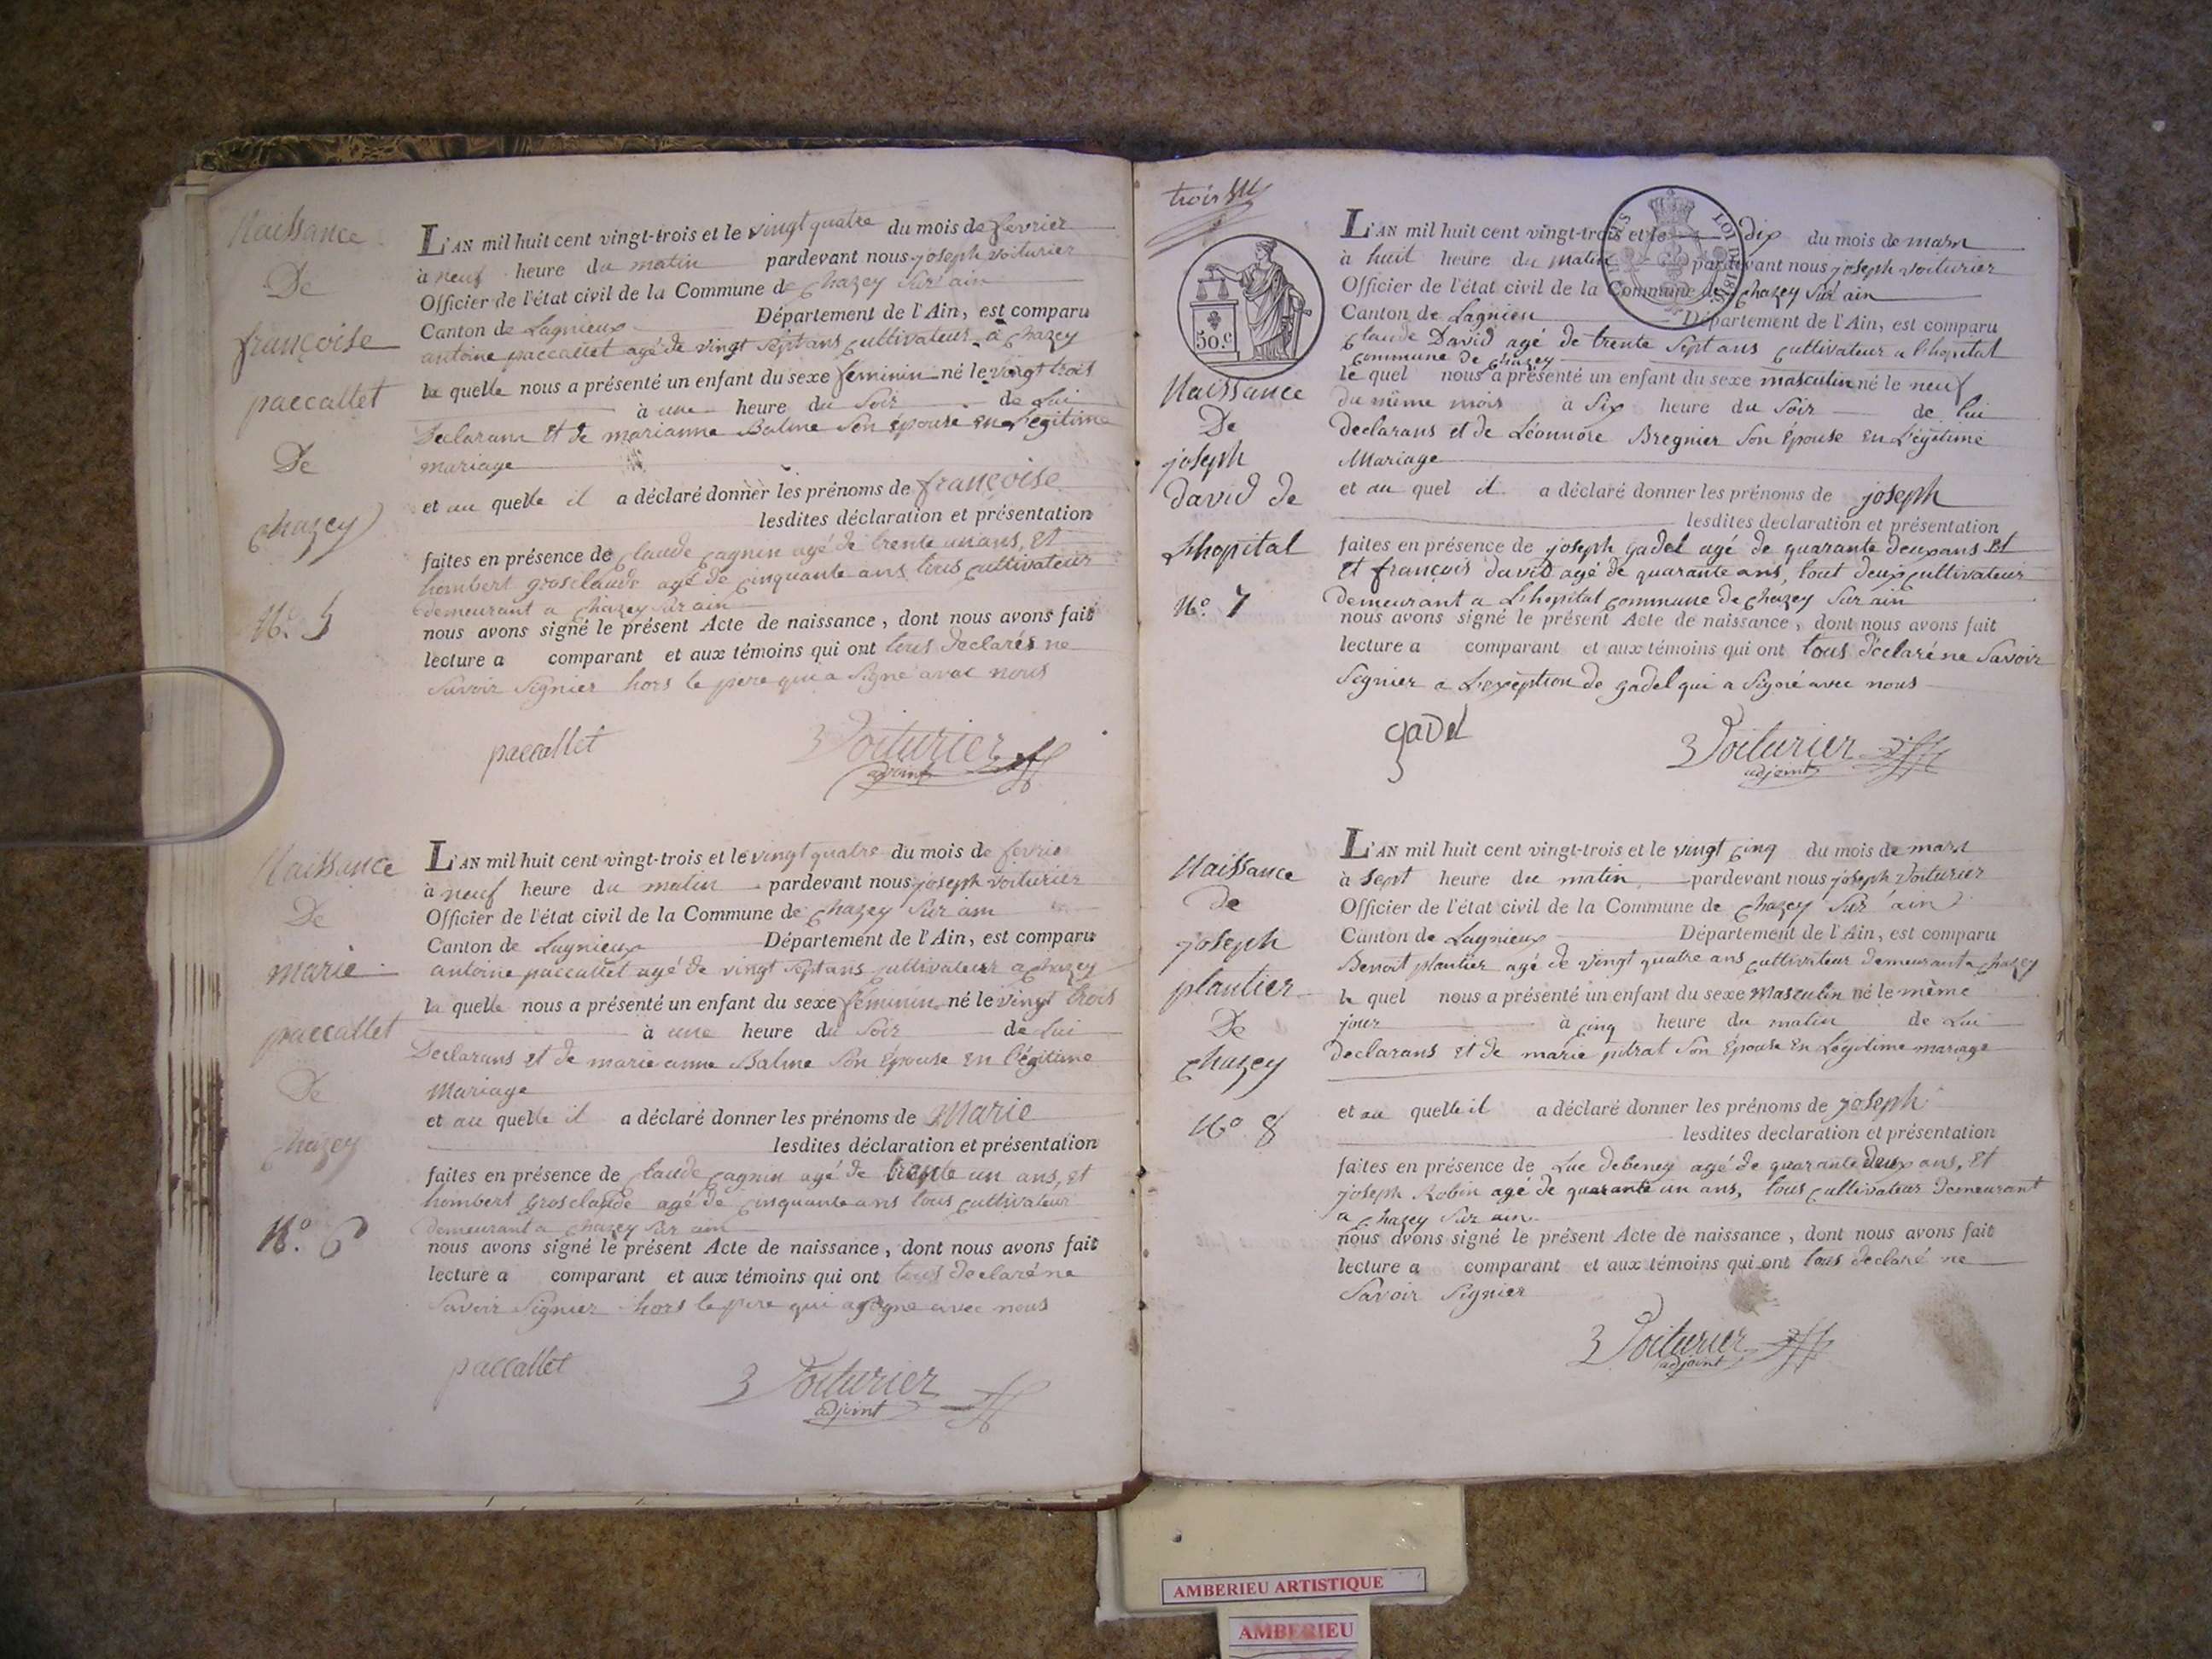 Naissance
De
françoise
paccallet
De
chazey
No. 5
L'AN mil huit cent vingt-trois et le vingt quatre du mois de fevrier
à neuf heure du matin pardevant nous joseph voiturier
Officier de l'état civil de la Commune de chazey sur ain
Canton de Lagnieux Département de l'Ain, est comparu
antoine paccallet agé de vingt sept ans cultivateur a chazey
la quelle nous a présenté un enfant du sexe feminin né le vingt trois
à une heure du soir de lui
Declarans et de marianne Balme son épouse en légitime
mariage
et au quelle il a déclaré donner les prénoms de françoise
lesdites déclaration et présentation
faites en présence de claude cagnin agé de trente un ans, et
hombert grosclaude agé de cinquante ans tous cultivateur
demeurant a chazey sur ain
nous avons signé le présent Acte de naissance, dont nous avons fait
lecture a comparant et aux témoins qui ont tous declarés ne
savoir signier hors le pere qui a signé avec nous
paccallet Voiturier
adjoint
Naissance
De
marie
paccallet
De
chazey
No. 6
L'AN mil huit cent vingt-trois et le vingt quatre du mois de fevrier
à neuf heure du matin pardevant nous joseph voiturier
Officier de l'état civil de la Commune de chazey sur ain
Canton de Lagnieux Département de l'Ain, est comparu
antoine paccallet agé de vingt sept ans cultivateur a chazey
la quelle nous a présenté un enfant du sexe féminin né le vingt trois
à une heure du soir de lui
Declarans et de marie anne Balme son épouse en légitime
Mariage
et au quelle il a déclaré donner les prénoms de Marie
lesdites déclaration et présentation
faites en présence de claude cagnin agé de trente un ans, et
hombert grosclaude agé de cinquante ans tous cultivateur
demeurant a chazey sur ain
nous avons signé le présent Acte de naissance, dont nous avons fait
lecture a comparant et aux témoins qui ont tous declaré ne
savoir signier hors le pere qui a signé avec nous
paccallet Voiturier
adjoint
trois
50.c
Naissance
De
joseph
david de
Lhopital
No. 7
L'AN mil huit cent vingt-trois et le dix du mois de mars
à huit heure du matin pardevant nous joseph voiturier
Officier de l'état civil de la Commune de chazey sur ain
Canton de Lagnieu Département de l'Ain, est comparu
claude David agé de trente sept ans cultivateur a lhopital
commune de chazey
le quel nous a présenté un enfant du sexe masculin né le neuf
du même mois à six heure du soir de lui
declarans et de Léonnore Bregnier son épouse en Légitime
Mariage
et au quel il a déclaré donner les prénoms de joseph
lesdites declaration et présentation
faites en présence de joseph gadel agé de quarante deux ans et
et françois david agé de quarante ans, tout deux cultivateur
demeurant a Lhopital commune de chazey sur ain
nous avons signé le présent Acte de naissance, dont nous avons fait
lecture a comparant et aux témoins qui ont tous déclaré ne savoir
signier a L'exception de gadel qui a signé avec nous
gadel Voiturier
adjoint
Naissance
de
joseph
plantier
De
chazey
No. 8
L'AN mil huit cent vingt-trois et le vingt cinq du mois de mars
à sept heure du matin pardevant nous joseph voiturier
Officier de l'état civil de la Commune de chazey sur ain
Canton de Lagnieux Département de l'Ain, est comparu
Benoit plantier agé de vingt quatre ans cultivateur demeurant a chazey
le quel nous a présenté un enfant du sexe Masculin né le même
jour à cinq heure du matin de Lui
declarans et de marie pitrat son épouse en Légitime mariage
et au quelle il a déclaré donner les prénoms de joseph
lesdites declaration et présentation
faites en présence de Luc debeney agé de quarante deux ans, et
joseph Robin agé de quarante un ans, tous cultivateur demeurant
a chazey sur ain
nous avons signé le présent Acte de naissance, dont nous avons fait
lecture a comparant et aux témoins qui ont tous declaré ne
savoir signier
Voiturier
adjoint
AMBERIEU ARTISTIQUE
AMBERIEU